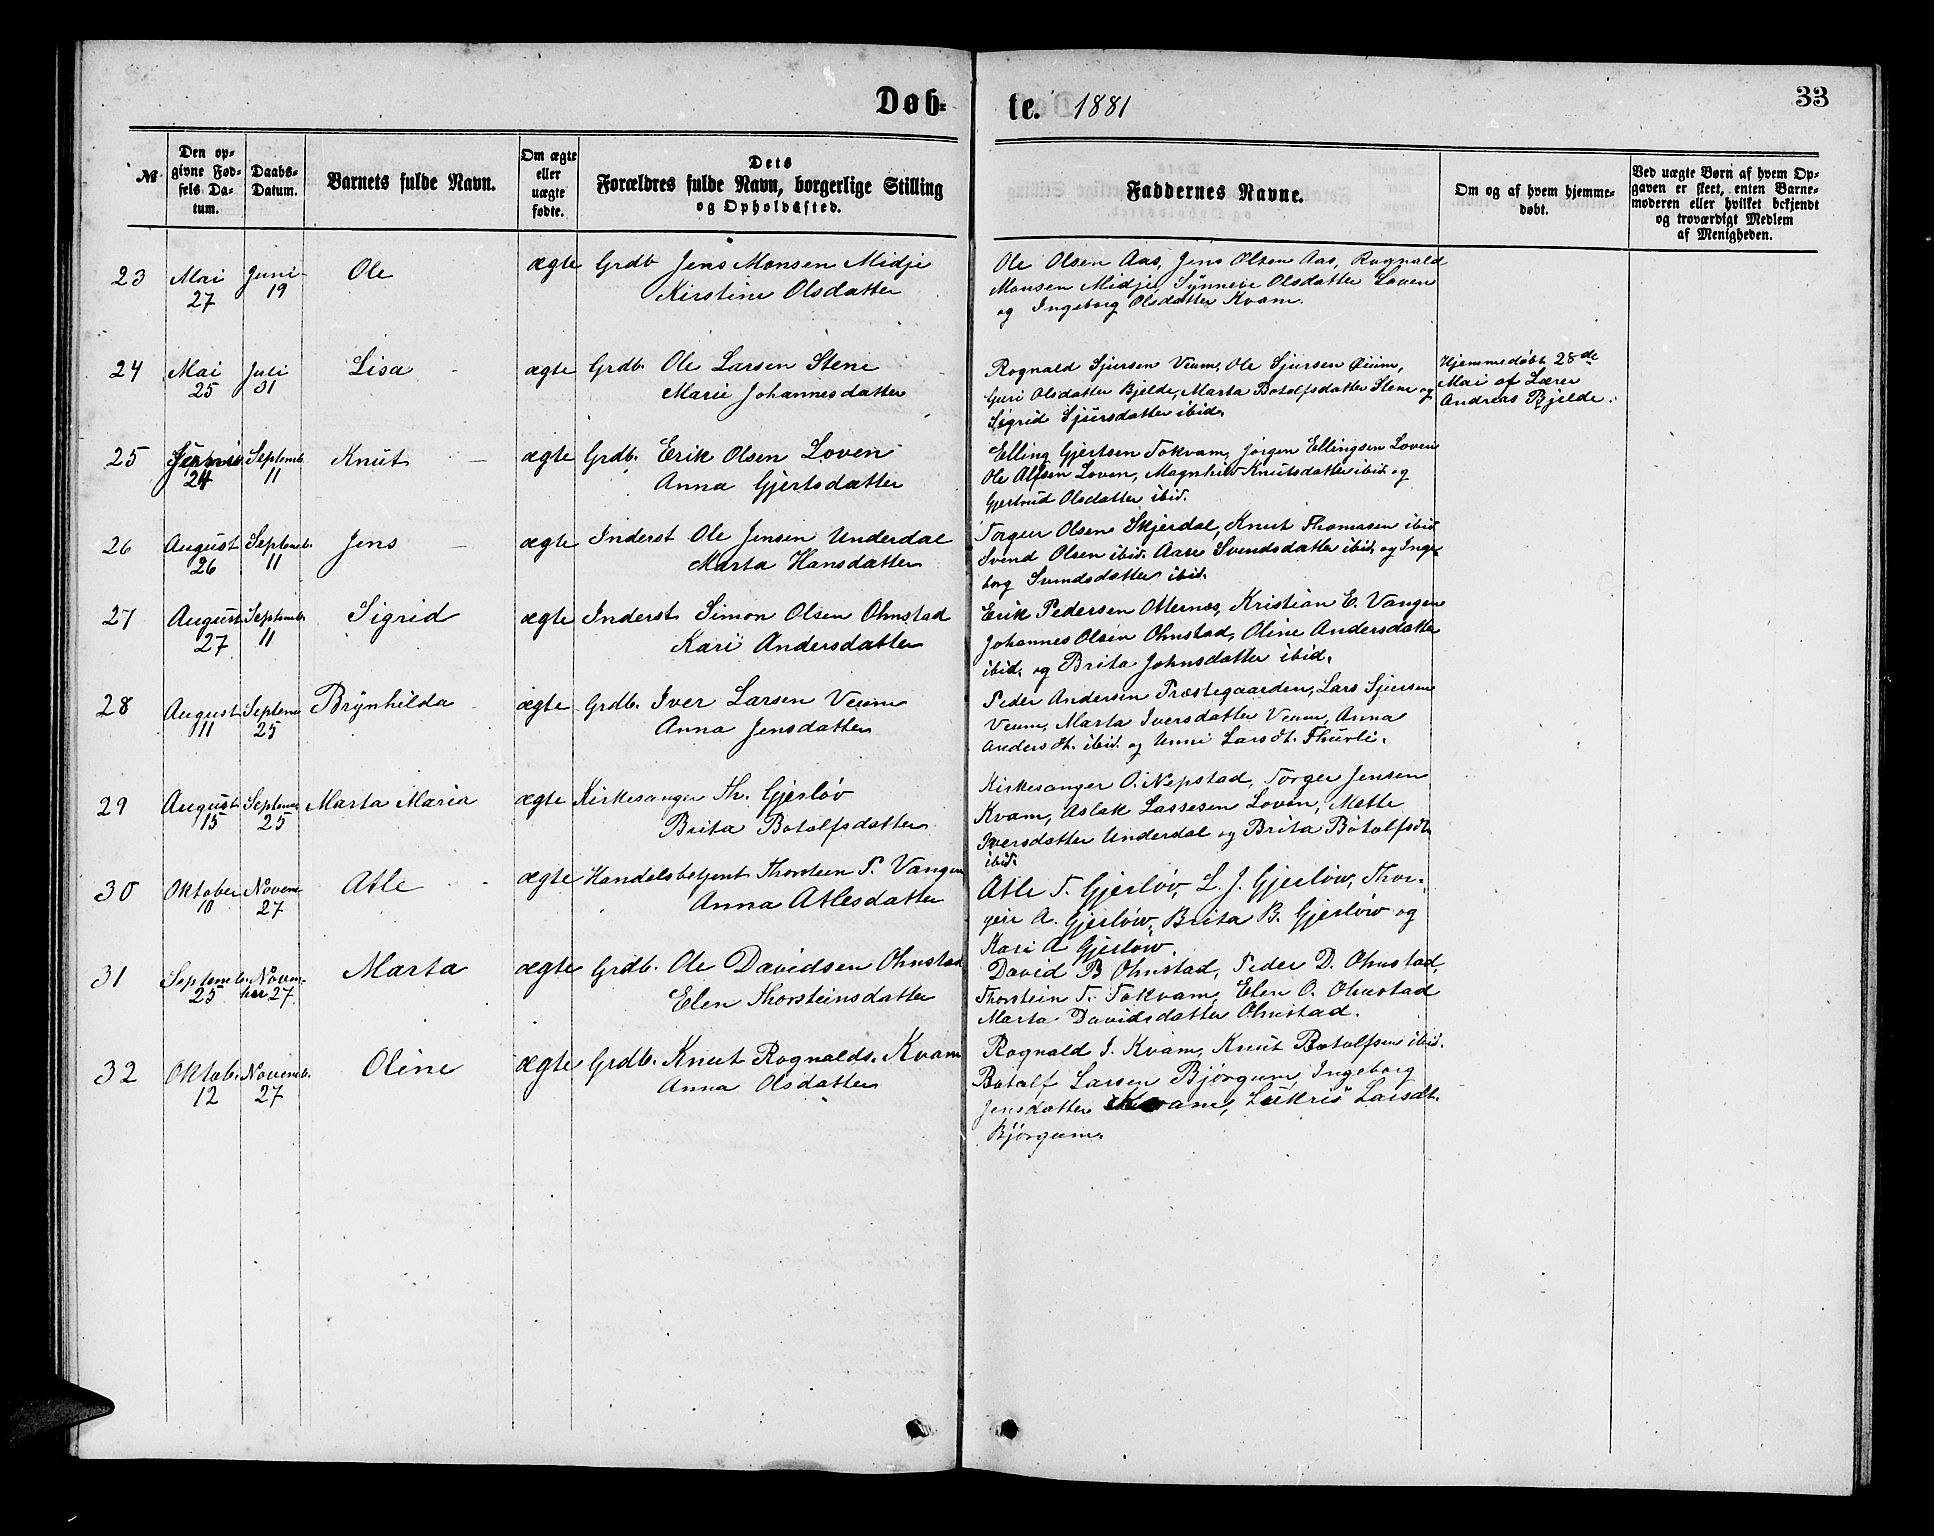 Døb-
te. 1881
33
№
Den op-
givne Fød-
sels Da-
tum.
Daabs-
Datum.
Barnets fulde Navn.
Om ægte
eller
uægte
fødte.
Dets
Forældres fulde Navn, borgerlige Stilling
og Opholdssted.
Faddernes Navne.
Om og af hvem hjemme-
døbt.
Ved uægte Børn af hvem Op-
gaven er skeet, enten Barne-
moderen eller hvilket bekjendt
og troværdigt Medlem
af Menigheden.
23 Mai 27 Juni 19 Ole ægte Grdb Jens Monsen Midje
Kirstine Olsdatter
Ole Olsen Aas, Jens Olsen Aas, Rognald
Monsen Midje, Synneve Olsdatter Loven
og Ingeborg Olsdatter Kvam.
24 Mai 25 Juli 31 Lisa ægte Grdb. Ole Larsen Stene
Marie Johannesdatter
Rognald Sjursen Veum, Ole Sjursen
Guri Olsdatter Bjelde, Marta Botolfsdatter Stene og
Sigrid Sjursdatter ibid.
Hjemmedøbt 28de
Mai af Lærer
Andreas Bjelde.
25 24 Septemb. 11 Knut ægte Grdb. Erik Olsen Loven
Anna Gjertsdatter
Elling Gjertsen Tokvam, Jørgen Ellingsen Loven
Ole Alfsen Loven, Magnhild Knutsdatter ibid. og
Gjertrud Olsdatter ibid.
26 August 26 Septemb. 11 Jens ægte Inderst Ole Jensen Underdal
Marta Hansdatter
Torgeir Olsen Skjerdal, Knut Thomasen ibid
Svend Olsen ibid. Aase Svendsdatter ibid. og Inge-
borg Svendsdatter ibid.
27 August 27 Septemb. 11 Sigrid ægte Inderst Simon Olsen Ohnstad
Kari Andersdatter
Erik Pedersen Otternes, Kristian E. Vangen
Johannes Olsen Ohnstad, Oline Andersdatter
ibid. og Brita Johnsdatter ibid.
28 August 11 Septem 25 Brynhilda ægte Grdb. Iver Larsen Veum
Anna Jensdatter
Peder Andersen Præstegaarden, Lars Sjursen
Veum, Marta Iversdatter Veum, Anna
Andersdt. ibid. og Unni Larsdt. Thurli.
29 August 15 Septem 25 Marta Maria ægte Kirkesanger Th. Gjerløv
Brita Botolfsdatter
Kirkesanger O. Nepstad, Torger Jensen
Kvam, Aslak Lassesen Loven, Mette
Iversdatter Underdal og Brita Botolfsdt.
ibid.
30 Oktober 10 Novem 27 Atle ægte Handelsbetjent Thorstein P. Vangen
Anna Atlesdatter
Atle T. Gjerløv, L. J. Gjerløw, Thor-
geir A. Gjerløw, Brita B. Gjerløw og
Kari A Gjerløw.
31 Septemb. 25 Novem-
ber 27 Marta ægte Grdb. Ole Davidsen Ohnstad
Elen Thorsteinsdatter
David B Ohnstad, Peder D. Ohnstad,
Thorstein T. Tokvam, Elen O. Ohnstad
Marta Davidsdatter Ohnstad.
32 Oktob. 12 Novemb. 27 Oline ægte Grdb. Knut Rognalds. Kvam
Anna Olsdatter
Rognald I. Kvam, Knut Botolfsen ibid.
Botolf Larsen Bjørgum, Ingeborg
Jensdatter Kvam, Larsdt.
Bjørgum.